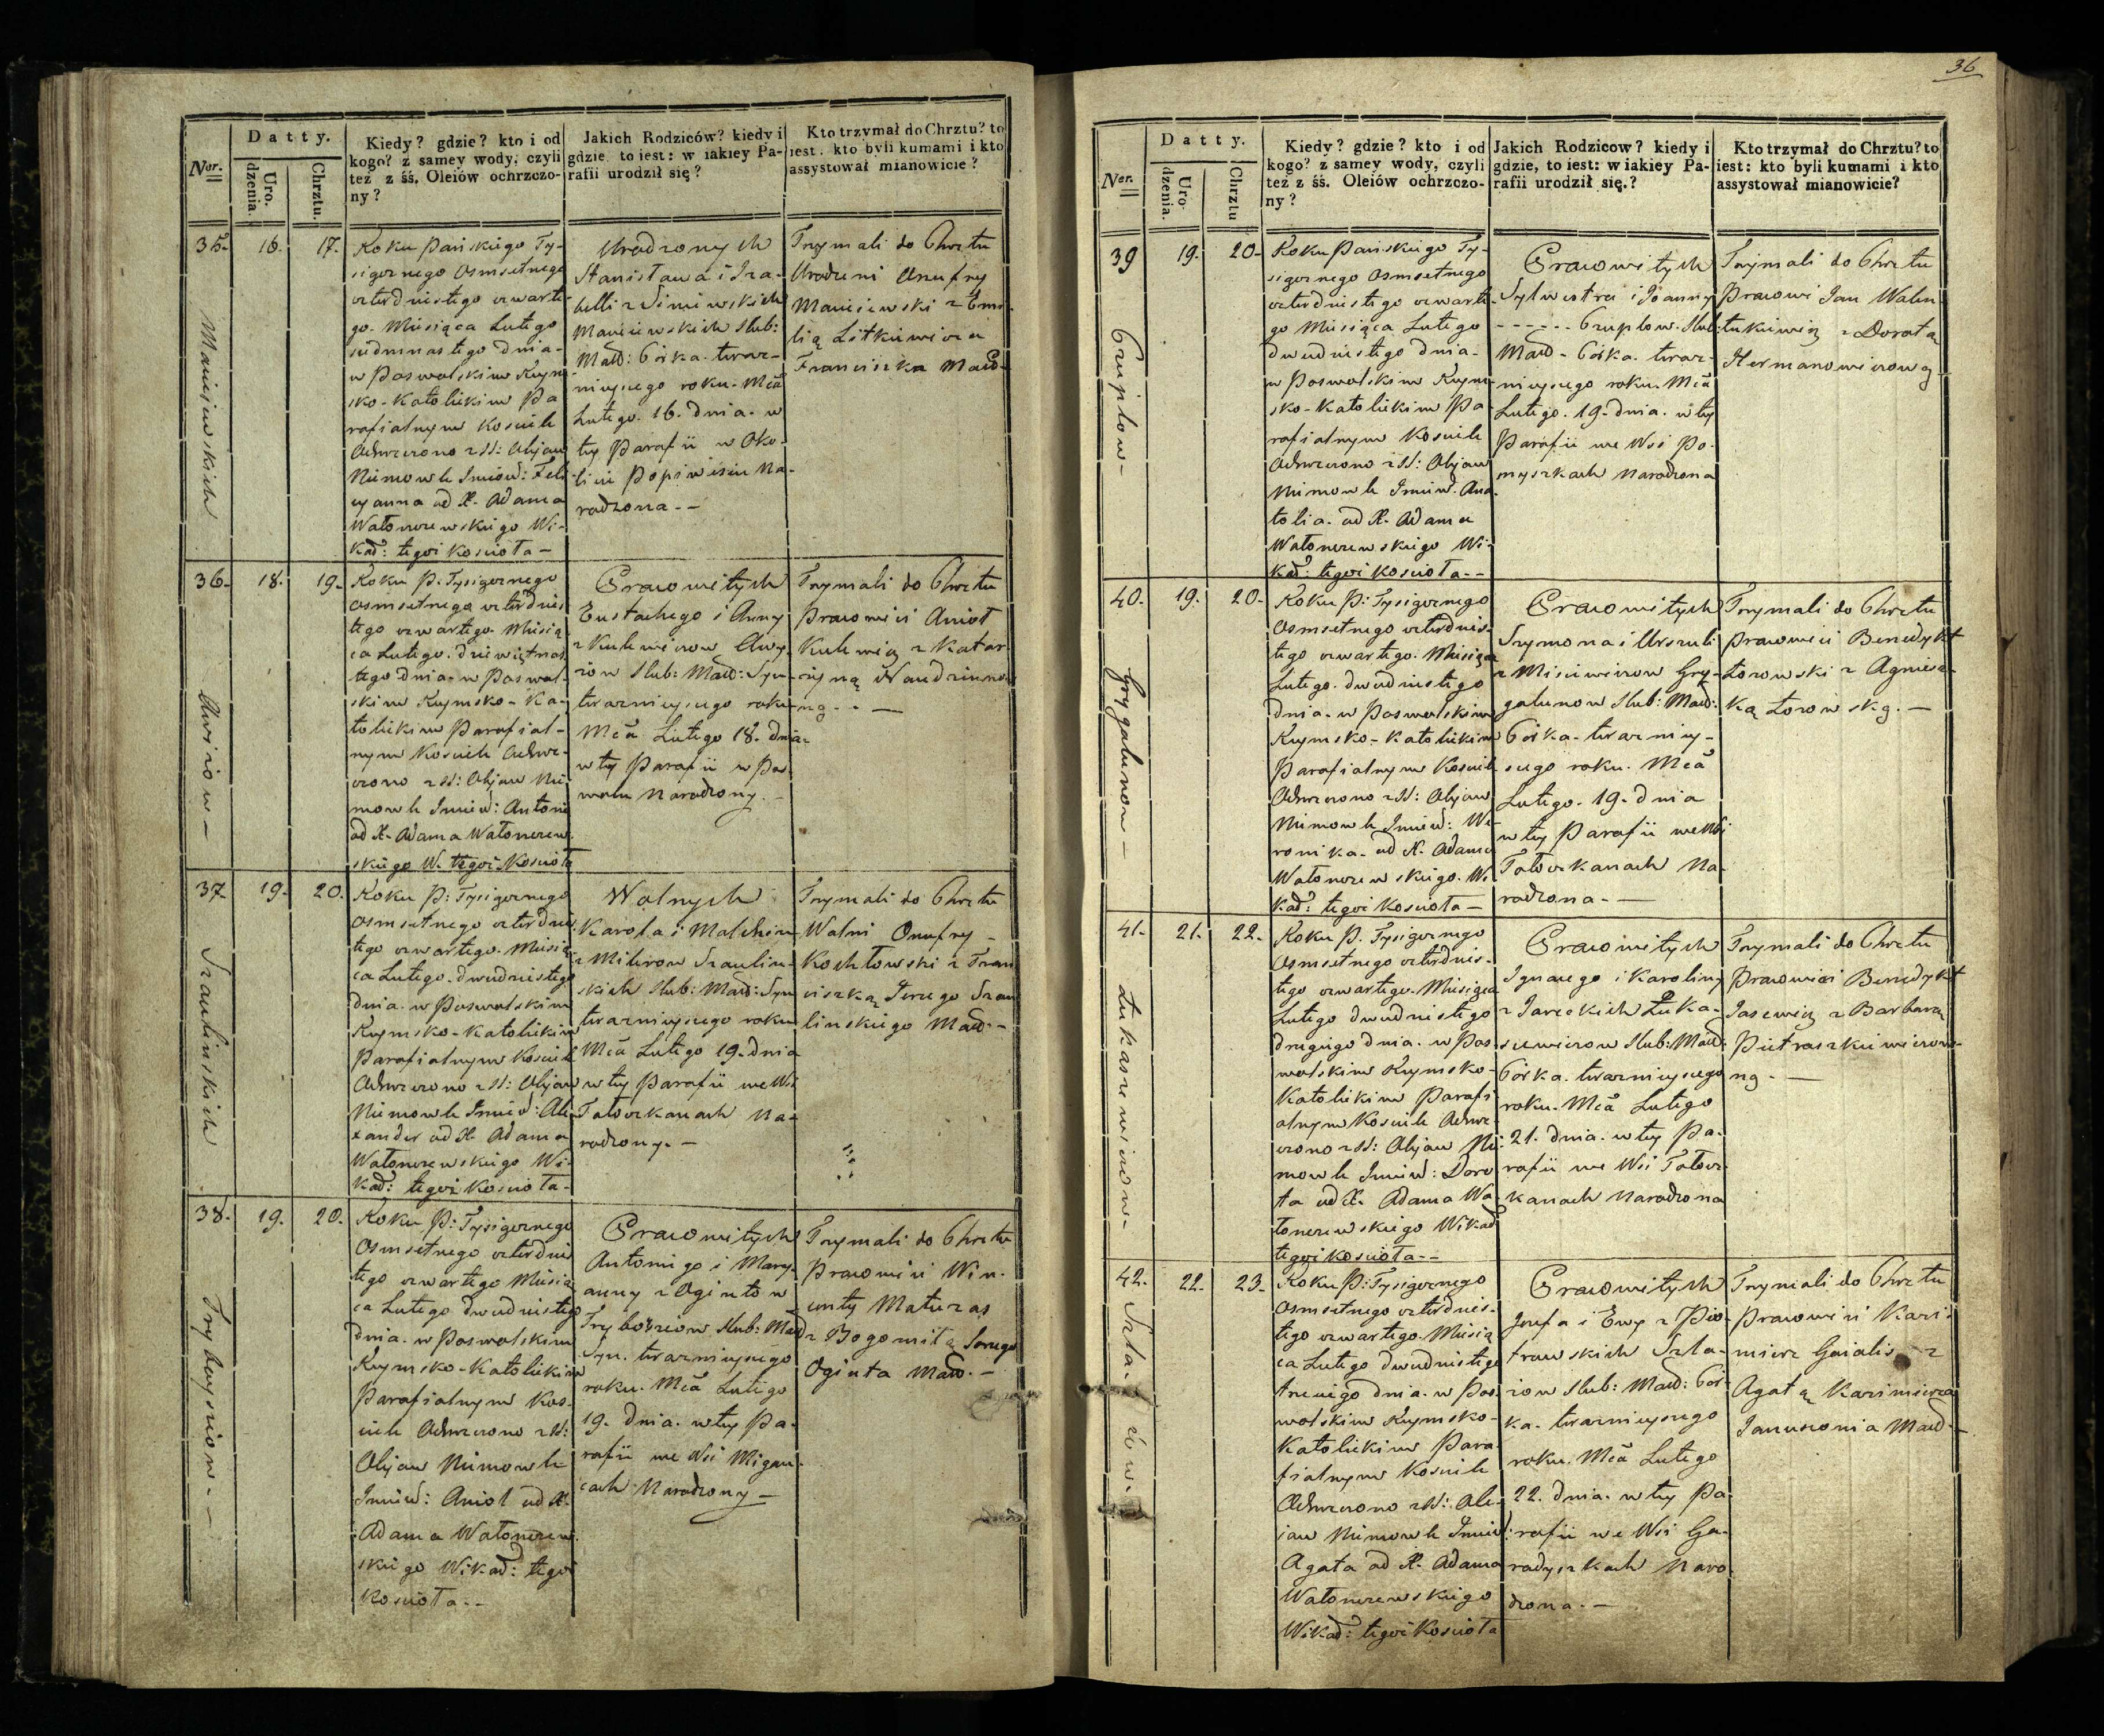 Datty.
Ner.
Uro.
dzenia.
Chrztu.
Kiedy? gdzie? kto i od
kogo? z samey wody, czyli
też z śś. Oleiów ochrzczo-
ny?
Jakich Rodziców? kiedy i
gdzie to iest: w iakiey Pa-
rafii urodził się?
Kto trzymał do Chrztu? to
iest: kto byli kumami i kto
assystował mianowicie?
35.
16.
17.
Maciiewskich
Roku Pańskiego Ty-
siącznego Osmsetnego
czterdziestego czwarte-
go. Miesiąca Lutego
siedmnastego dnia.
w Poswolskim Rzym-
sko-Katolickim Pa
rafialnym Kosciele
Ochrzczono z SS: Olejow
Niemowle Imiem: Feli
cyanna od X. Adama
Wałonczewskiego Wi-
kad: tegoż Koscioła -
Urodzonych
Stanisława i Iza-
belli z
Maciiewskich Slub:
Małż: Córka. teraz-
nieyszego roku. Mca
Lutego. 16. dnia. w
tey Parafii w Oko-
licii Popiwesiu Na-
rodzona. -
Trzymali do Chrztu
Urodzeni Onufry
Maciiewski z Emi-
lią Litkiewicza
Franciszka Małż.
36.
18.
19.
Roku P. Tysiącznego
Osmsetnego czterdzies
tego czwartego. Miesią
ca Lutego. dziewiętnas
tego dnia. w Poswol-
skim Rzymsko-Ka-
tolickim Parafial-
nym Kosciele Ochrz-
czono z SS: Olejow Nie
mowle Imiem: Antoni
od X. Adama Wałonczew
skiego W. tegoż Kosciołа
Pracowitych
Eustachego i Anny
z Kulewiczow
Slub: Małż: Syn
teraznieyszego roku
Mca Lutego 18. dnia
w tey Parafii w Pos
wolu Narodzony. -
Trzymali do Chrztu
Pracowici Anioł
Kulewicz z Katar-
zyną
37
19.
20.
Szaulinskich
Roku P: Tysiącznego
Osmsetnego czterdzies
tego czwartego. Miesią
ca Lutego. dwudziestego
dnia. w Poswolskim
Rzymsko-Katolickim
Parafialnym Kosciele
Ochrzczono z SS: Olejow
Niemowle Imiem: Ale
xander od X. Adama
Wałonczewskiego Wi-
kad: tegoż Kosciołа -
Wolnych
Karola i
z Szaulin-
skich Slub: Małż: Syn
teraznieyszego roku
Mca Lutego 19. dnia
w tey Parafii we Wsi
Tatorkanach Na-
rodzony. -
Trzymali do Chrztu
Wolni Onufry
Kochłowski z Fran
ciszką Jerzego Szau
linskiego Małż. -
38.
19.
20.
Roku P: Tysiącznego
Osmsetnego czterdzies
tego czwartego Miesią
ca Lutego dwudziestego
dnia. w Poswolskim
Rzymsko-Katolickim
Parafialnym Kos-
ciele Ochrzczono z SS:
Olejow Niemowle
Imiem: Anioł od X.
Adama Wałonczew-
skiego Wikad: tegoż
Kosciołа. -
Pracowitych
Antoniego i Mary-
anny z Ogintow
Slub: Małż
Syn. teraznieyszego
roku. Mca Lutego
19. dnia. w tey Pa-
rafii we Wsi Migau-
cach Narodzony -
Trzymali do Chrztu
Pracowici Win-
centy Maturas
z Bogomiłą Jerzego
Oginta Małż. -
36
Datty.
Ner.
Uro.
dzenia.
Chrztu
Kiedy? gdzie? kto i od
kogo? z samey wody, czyli
też z śś. Oleiów ochrzczo-
ny?
Jakich Rodzicow? kiedy i
gdzie, to iest: w iakiey Pa-
rafii urodził się.?
Kto trzymał do Chrztu? to
iest: kto byli kumami i kto
assystował mianowicie?
39
19.
20.
Czuplow
Roku Pańskiego Ty-
siącznego Osmsetnego
czterdziestego czwarte-
go Miesiąca Lutego
dwudziestego dnia.
w Poswolskim Rzym-
sko-Katolickim Pa-
rafialnym Kosciele
Ochrzczono z SS: Olejow
Niemowle Imiem. Ana-
tolia. od X. Adama
Wałonczewskiego Wi-
kad: tegoż Kosciołа. -
Pracowitych
Sylwestra i Joanny
- - - - - Czuplow. Slub:
Małż - Córka. teraz-
nieyszego roku. Mca
Lutego. 19. dnia. w tey
Parafii we Wsi Po-
myszkach Narodzona
Trzymali do Chrztu
Pracowici Jan Walen-
tukiewicz z Dorotą
Hermanowiczową
40.
19.
20.
Grygalunow -
Roku P: Tysiącznego
Osmsetnego czterdzies-
tego czwartego. Miesiąca
Lutego. dwudziestego
dnia. w Poswolskim
Rzymsko-Katolickim
Parafialnym Kosciele
Ochrzczono z SS: Olejow
Niemowle Imiem: We-
ronika. od X. Adama
Wałonczewskiego. Wi
kad: tegoż Kosciołа -
Pracowitych
Szymona i Urszuli
z Misiewiczow Gry-
galunow Slub: Małż:
Córka. terazniey-
szego roku. Mca
Lutego. 19. dnia
w tey Parafii we Wsi
Tatorkanach Na-
rodzona. -
Trzymali do Chrztu
Pracowici Benedykt
Łozowski z Agniesz-
ką Łozowską. -
41.
21.
22.
Łukaszewiczow.
Roku P. Tysiącznego
Osmsetnego czterdzies-
tego czwartego. Miesiąca
Lutego dwudziestego
drugiego dnia. w Pos-
wolskim Rzymsko-
Katolickim Parafi
alnym Kosciele Ochrz-
czono z SS: Olejow Nie-
mowle Imiem: Doro
ta od X. Adama Wa-
łonczewskiego Wikad
tegoż Kosciołа. -
Pracowitych
Ignacego i Karoliny
z Jareckich Łuka-
szewiczow Slub: Małż:
Córka. terazniejszego
roku. Mca Lutego
21. dnia. w tey Pa-
rafii we Wsi Tator-
kanach Narodzona
Trzymali do Chrztu
Pracowici Benedykt
Jasewicz z Barbarą
Pietraszkiewiczow-
ną. -
42.
22.
23.
Roku P: Tysiącznego
Osmsetnego czterdzies-
tego czwartego. Miesią
ca Lutego dwudziestego
trzeciego dnia. w Pos-
wolskim Rzymsko-
Katolickim Para-
fialnym Kosciele
Ochrzczono z SS: Ole-
jow Niemowle Imiem:
Agata od X. Adama
Wałonczewskiego
Wikad: tegoż Kosciołа
Pracowitych
Jozefa i Ewy z Pio-
trowskich
Slub: Małż: Cór-
ka. terazniejszego
roku. Mca Lutego
22. dnia. w tey Pa-
rafii we Wsi Ga-
radyszkach Naro-
dzona. -
Trzymali do Chrztu
Pracowici Kazi-
mierz Gaialis z
Agatą Kazimierza
Janusonia Małż. -